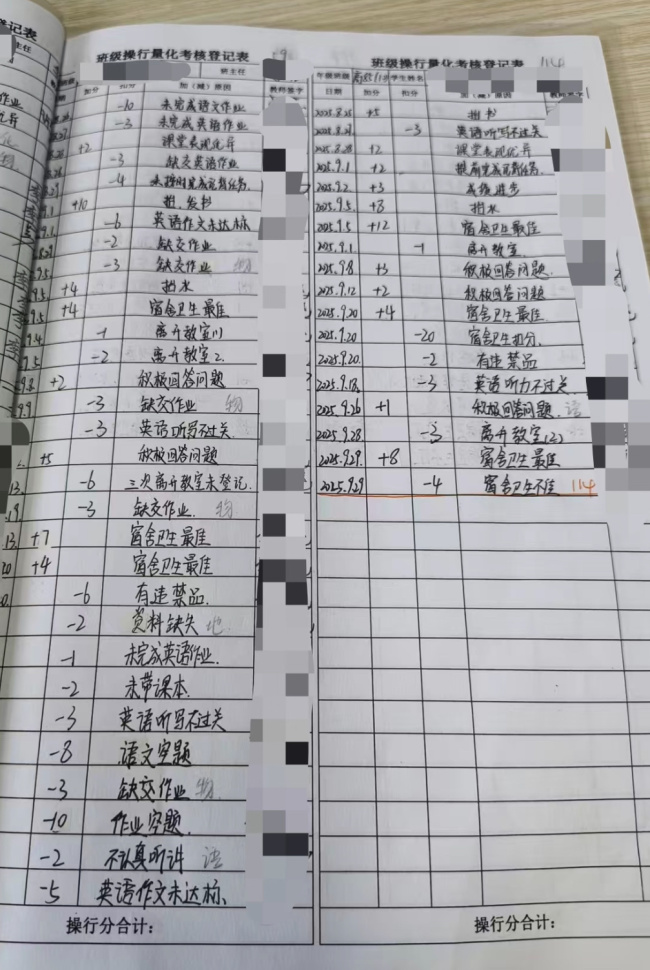 记表
班级操行量化考核登记表
班主任
加分 扣分 加(减)原因 教师签字
-10 未完成语文作业
-3 未完成英语作业
+2 课堂表现优异
-3 缺交英语作业
-4 未按时完成完背任务
+10 捐、发书
-6 英语作文未达标
-2 缺交作业
-3 缺交作业 物
+4 捐水
+4 宿舍卫生最佳
-1 离开教室(1)
-2 离开教室2.
+2 积极回答问题
-3 缺交作业 物
-3 英语听写不过关
+5 积极回答问题
-6 三次离开教室未登记
-3 缺交作业 物
+7 宿舍卫生最佳
+4 宿舍卫生最佳
-6 有违禁品
-2 资料缺失 地
-1 未完成英语作业
-2 未带课本
-3 英语听写不过关
-8 语文空题
-3 缺交作业 物
-10 作业空题
-2 不认真听讲 语
-5 英语作文未达标
操行分合计:
班级操行量化考核登记表 114
年级班级 学生姓名
日期 加分 扣分 加(减)原因
+5 捐书
-3 英语听写不过关
2025.8.28 +2 课堂表现优异
2025.9.1 +2
2025.9.2 +3 成绩进步
2025.9.5 +8 捐水
2025.9.5 +12 宿舍卫生最佳
2025.9.1 -1 离开教室
2025.9.8 +3 积极回答问题
2025.9.12 +2 积极回答问题
2025.9.20 +4 宿舍卫生最佳
2025.9.20 -20 宿舍卫生扣分
2025.9.20 -2 有违禁品
2025.9.18 -3 英语听力不过关
2025.9.26 +1 积极回答问题 语
2025.9.28 -3 离开教室(2)
2025.9.29 +8 宿舍卫生最佳
2025.9.29 -4 宿舍卫生不佳 114
操行分合计: